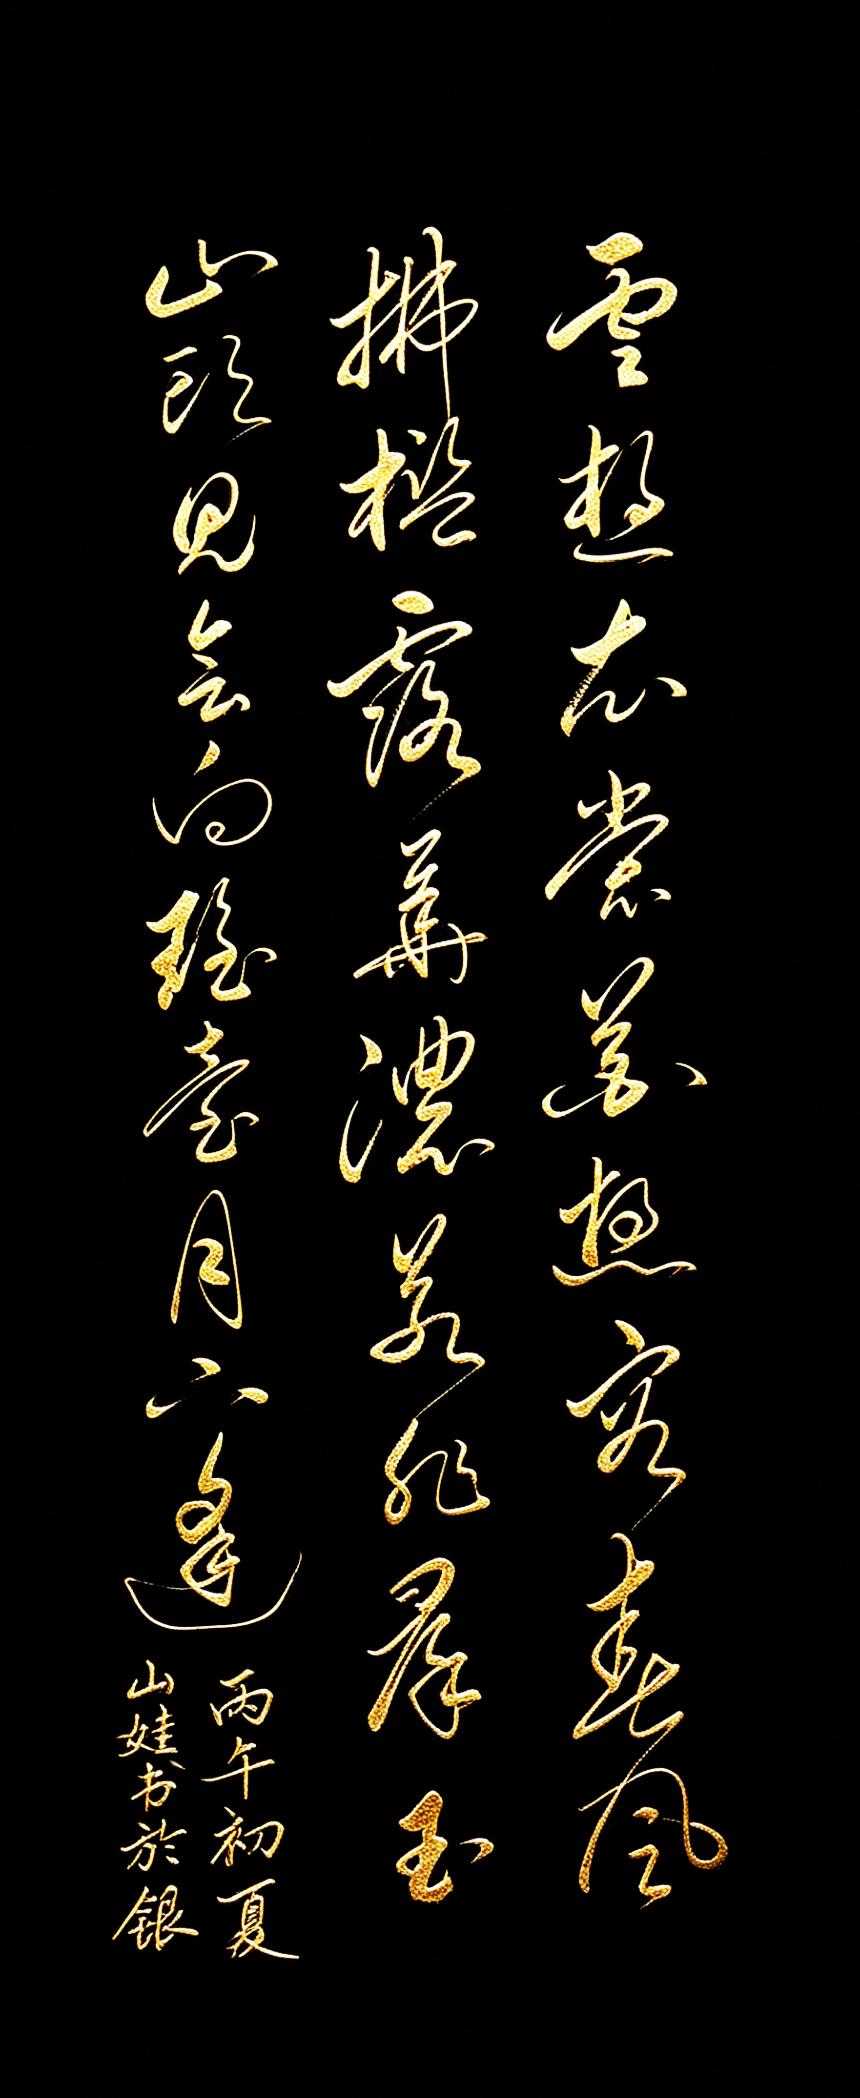 雲想衣裳花想容春風
拂檻露華濃若非羣玉
山頭見会向瑤臺月下逢
丙午初夏
山娃书於銀